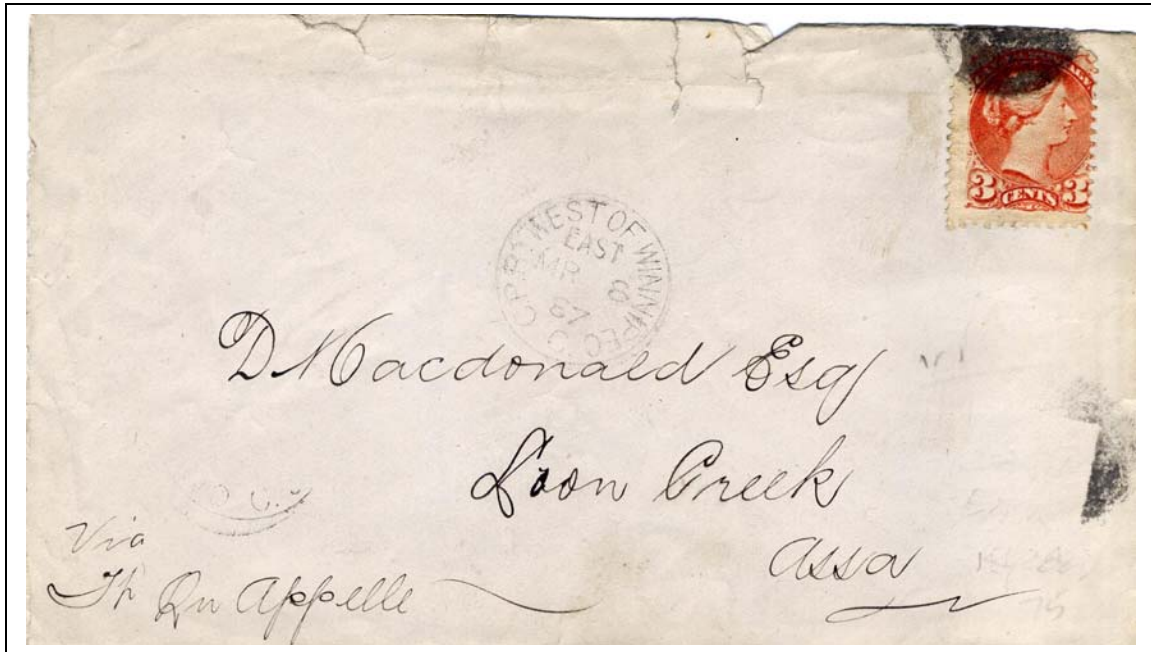 3 CENTS 3
C.P.RY WEST OF WINNIPEG
EAST
MR 8
87
D Macdonald Esq
Loon Creek
Assa
Via
Ft Qu Appelle